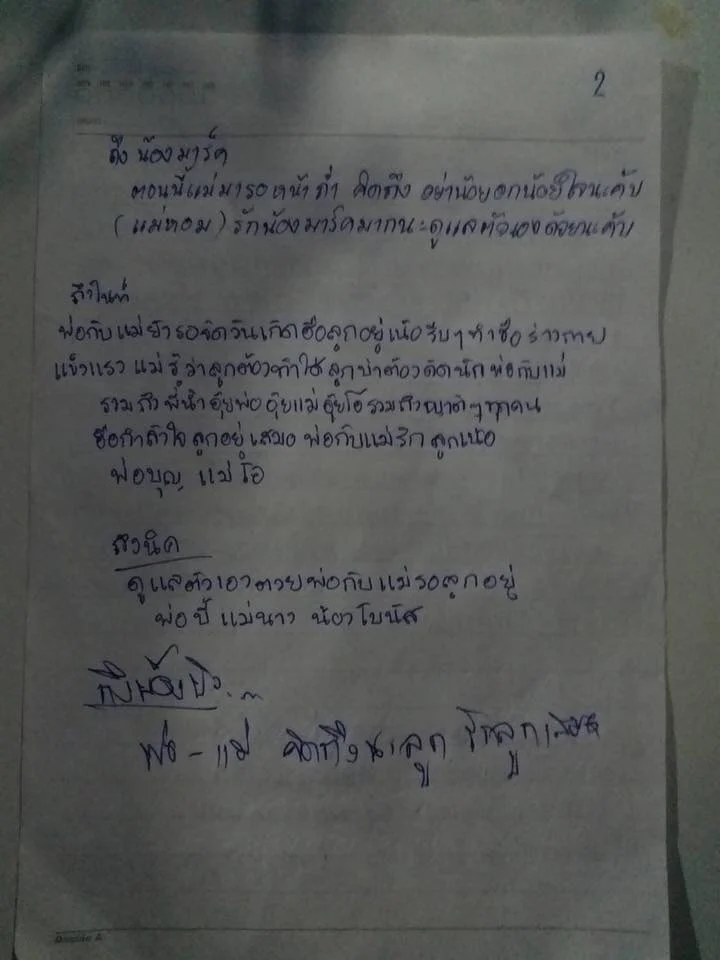 2
ถึง น้องมาร์ค
ตอนนี้แม่มารอหน้าถ้ำ คิดถึง อย่าน้อยอกน้อยใจนะคับ
(แม่หอม) รักน้องมาร์คมากนะดูแลตัวเองด้วยนะคับ
ถึงไนท์
พ่อกับแม่ยังรอจัดวันเกิดฮือลูกอยู่เน้อ รีบๆทำฮือร่างกาย
แข็งแรง แม่ฮู้ว่าลูกต้องทำได้ ลูกบ่าต้องคิดนัก พ่อกับแม่
รวมถึงพี่น้ำ อุ้ยพ่อ อุ้ยแม่ อุ้ยโอ รวมถึงญาติๆทุกคน
ฮือกำลังใจลูกอยู่เสมอ พ่อกับแม่รักลูกเน้อ
พ่อบุญ แม่
ถึงนิค
ดูแลตัวเองดวยพ่อกับแม่รอลูกอยู่
พ่อ แม่นาง น้องโบนัส
ถึงน้อง
พ่อ - แม่ คิดถึงนะลูก รักลูกเสมอ
Double A